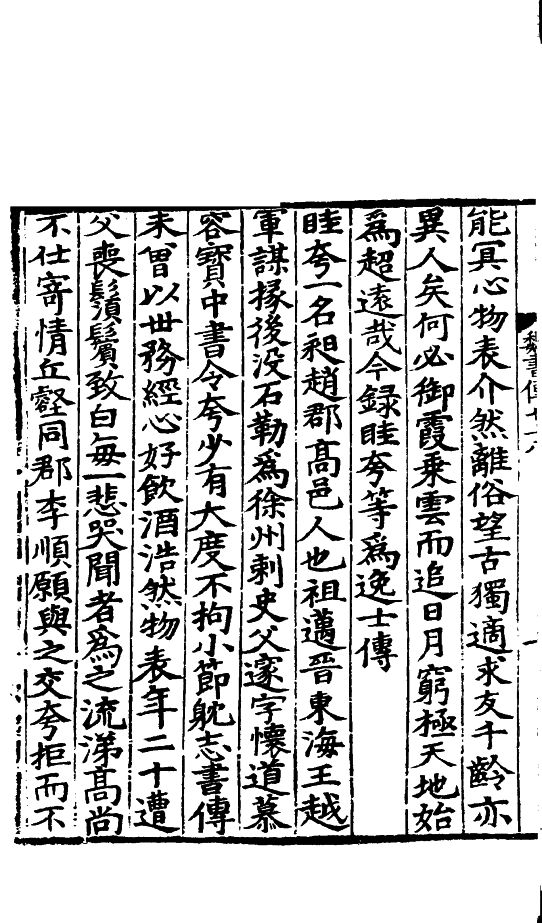 魏書傳七十八
能冥心物表介然離俗望古獨適求友千齡亦
異人矣何必御霞乘雲而追日月窮極天地始
爲超遠哉今録眭夸等爲逸士傳
眭夸一名昶趙郡髙邑人也祖邁晉東海王越
軍謀掾後没石勒爲徐州刺史父邃字懷道慕
容寶中書令夸少有大度不拘小節躭志書傳
未曽以世務經心好飲酒浩然物表年二十遭
父喪鬚鬢致白每一悲哭聞者爲之流涕髙尚
不仕寄情丘壑同郡李順願與之交夸拒而不